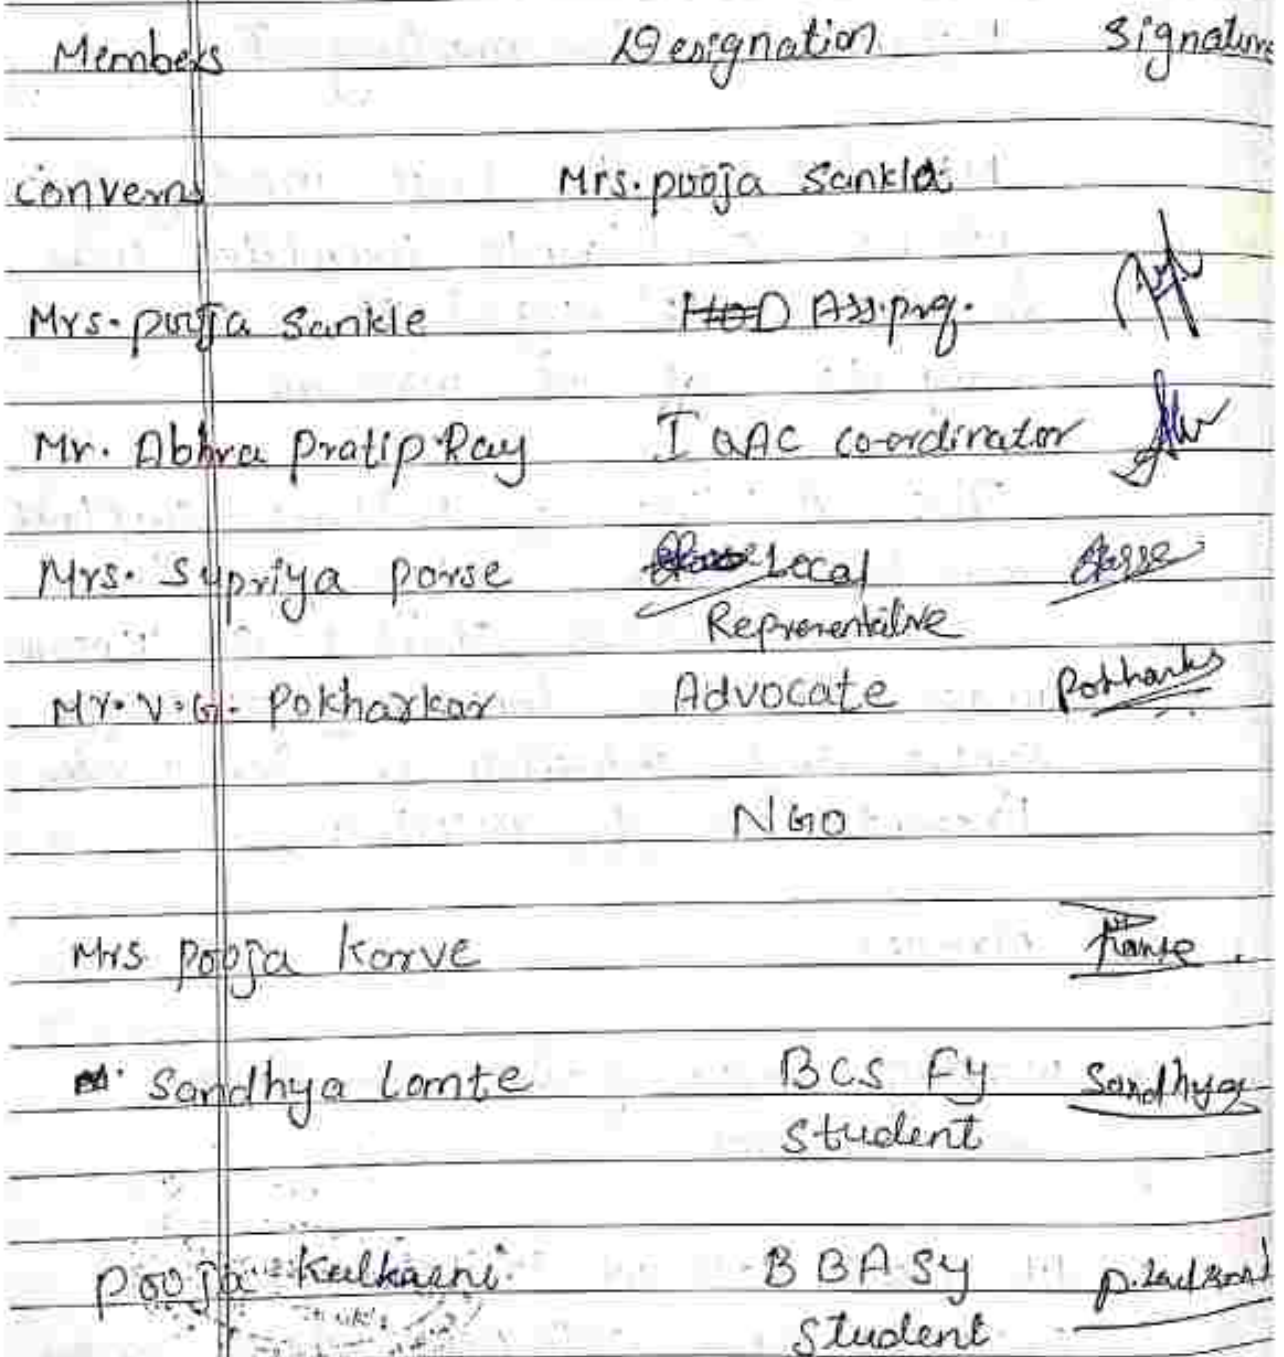 Members Designation Signature
Convern Mrs. pooja Sankla
Mrs. pooja Sankle HOD Ass. prof.
Mr. Abhra Pratip Ray IQAC co-ordinator
Mrs. Supriya Porse Local
Representative
Mr. V. G. Pokharkar Advocate Pokharkar
NGO
Mrs pooja Karve
Sandhya Lomte BCS Fy Sandhya
Student
Pooja Kulkarni BBA Sy
Student